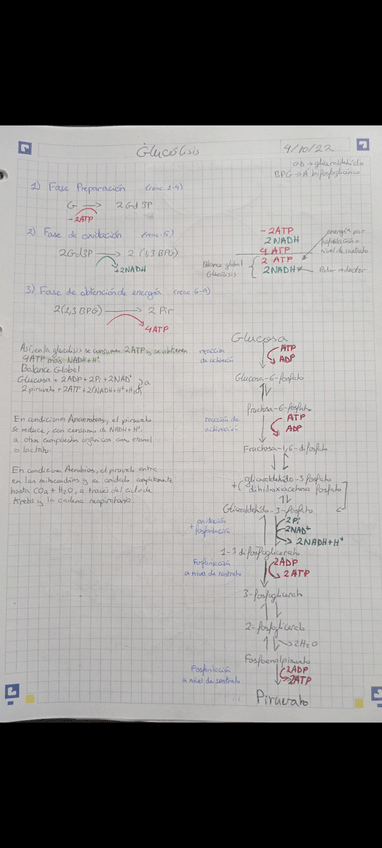 Glucólisis
9/10/22
BPG →
1) Fase Preparación (reac 1-4)
G ⟶ 2 Gd3P
-2ATP
2) Fase de oxidación (reac 5)
2Gd3P ⟶ 2 (1,3 BPG)
2NADH
3) Fase de obtención de energía (reac 6-9)
2(1,3 BPG) ⟶ 2 Pir
4ATP
-2ATP
2NADH
4 ATP
2 ATP
2 NADH
Balance global
Glucólisis
energía por
fosforilación a
nivel de sustrato
Poder reductor
Así en la glucólisis se consumen 2ATP y se obtienen
4ATP más NADH+H⁺.
Balance Global
Glucosa + 2ADP + 2Pi + 2NAD⁺ →
2 piruvato + 2ATP + 2(NADH+H⁺)
En condiciones Anaerobias, el piruvato
se reduce, con consumo de NADH+H⁺,
a otros compuestos orgánicos como etanol
o lactato.
En condición Aerobias, el piruvato entra
en las mitocondrias y se oxida completamente
hasta CO₂ + H₂O, a través del ciclo de
Krebs y la cadena respiratoria.
Glucosa
reacción
de activación
ATP
ADP
Glucosa-6-fosfato
Fructosa-6-fosfato
reacción de
activación
ATP
ADP
Fructosa-1,6-difosfato
gliceraldehído-3-fosfato
dihidroxiacetona fosfato
Gliceraldehído-3-fosfato
oxidación
+ fosforilación
2Pi
2NAD⁺
2NADH+H⁺
1-3 difosfoglicerato
Fosforilación
a nivel de sustrato
2ADP
2ATP
3-fosfoglicerato
2-fosfoglicerato
2H₂O
Fosfoenolpiruvato
Fosforilación
a nivel de sustrato
2ADP
2ATP
Piruvato